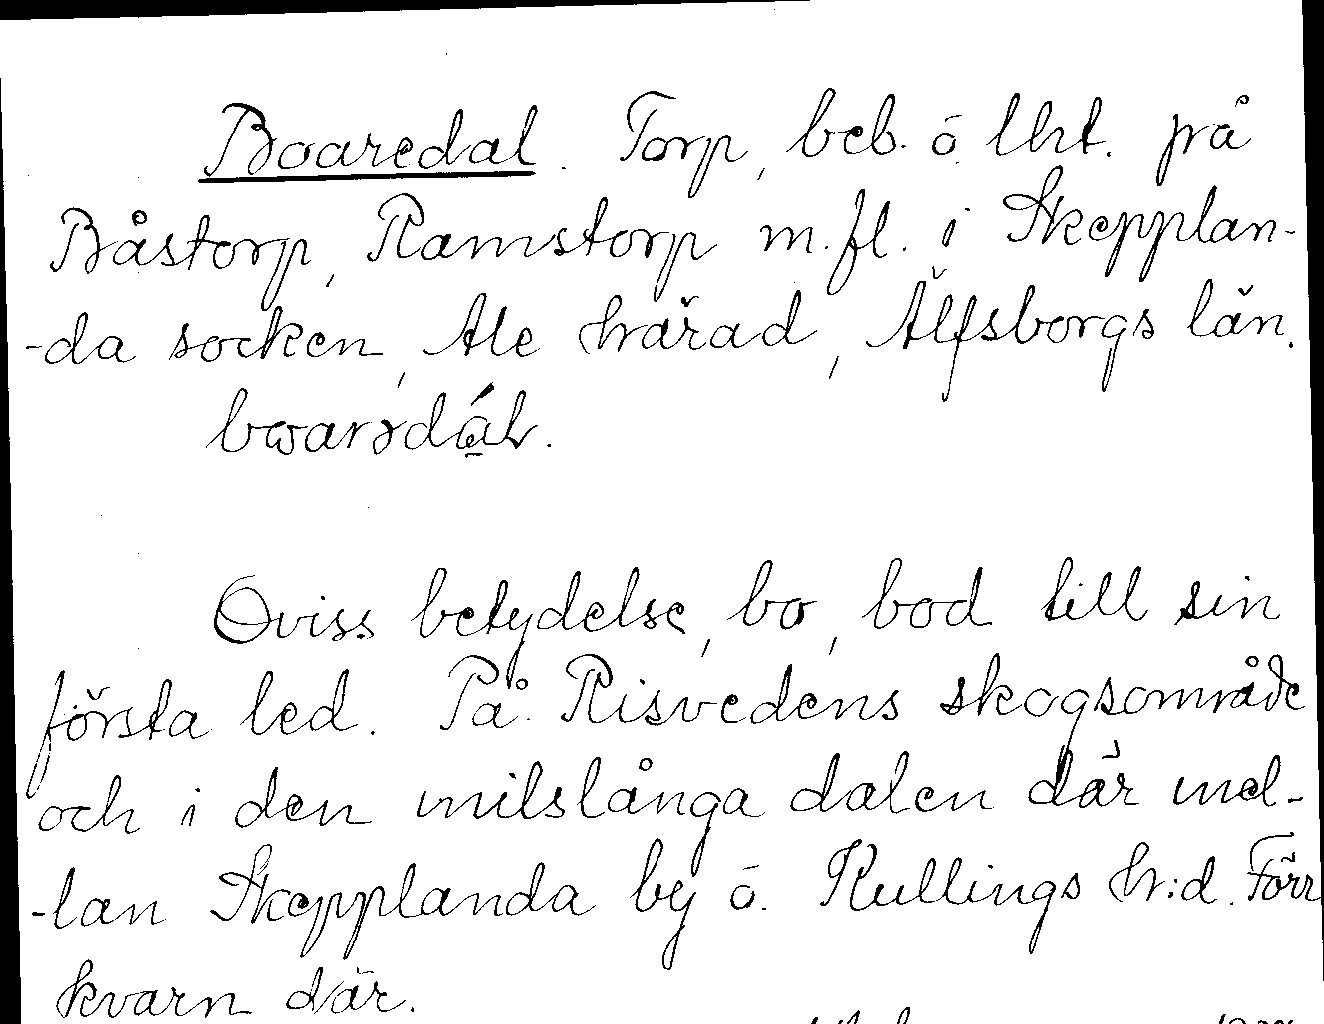 Boaredal. Torp, beb. o. lht. på
Båstorp, Ramstorp m.fl. i Skepplan-
-da socken, Ale härad, Älfsborgs län.

Oviss betydelse, bo, bod till sin
första led. På Risvedens skogsområde
och i den milslånga dalen där mel-
-lan Skepplanda by o. Kullings h:d. Förr
kvarn där.